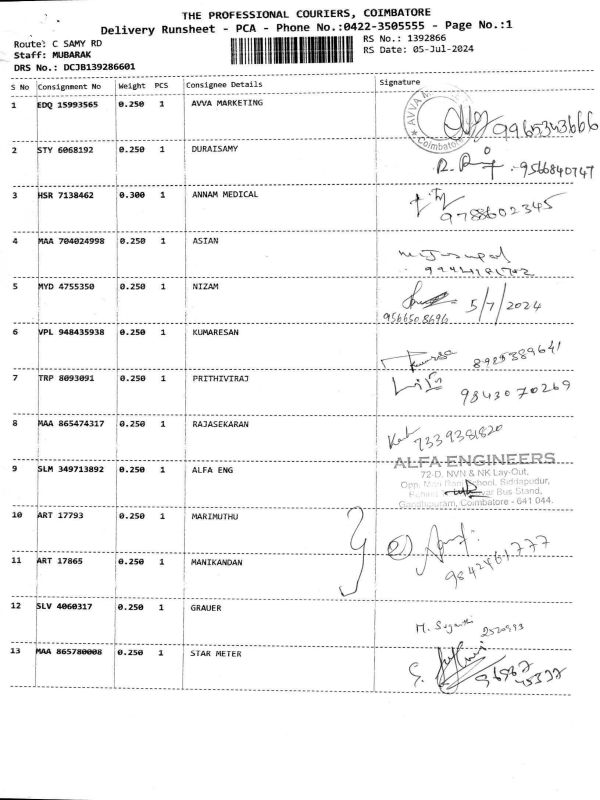 THE PROFESSIONAL COURIERS, COIMBATORE
Delivery Runsheet - PCA - Phone No.:0422-3505555 - Page No.:1
Route: C SAMY RD
RS No.: 1392866
Staff: MUBARAK
RS Date: 05-Jul-2024
DRS No.: DCJB139286601
S No Consignment No Weight PCS Consignee Details Signature
1 EDQ 15993565 0.250 1 AVVA MARKETING
AVVA Coimbatore 9965343666
2 STY 6068192 0.250 1 DURAISAMY
9566840747
3 HSR 7138462 0.300 1 ANNAM MEDICAL
9788602345
4 MAA 704024998 0.250 1 ASIAN
5 MYD 4755350 0.250 1 NIZAM
5/7/2024
9566508696
6 VPL 948435938 0.250 1 KUMARESAN
8925389641
7 TRP 8093091 0.250 1 PRITHIVIRAJ
9843070269
8 MAA 865474317 0.250 1 RAJASEKARAN
7339381820
9 SLM 349713892 0.250 1 ALFA ENG
ALFA ENGINEERS
72-D, NVN & NK Lay-Out,
Opp. School, Siddapudur,
Bus Stand,
Gandhipuram, Coimbatore - 641 044.
10 ART 17793 0.250 1 MARIMUTHU
11 ART 17865 0.250 1 MANIKANDAN
9842461777
12 SLV 4060317 0.250 1 GRAUER
13 MAA 865780008 0.250 1 STAR METER